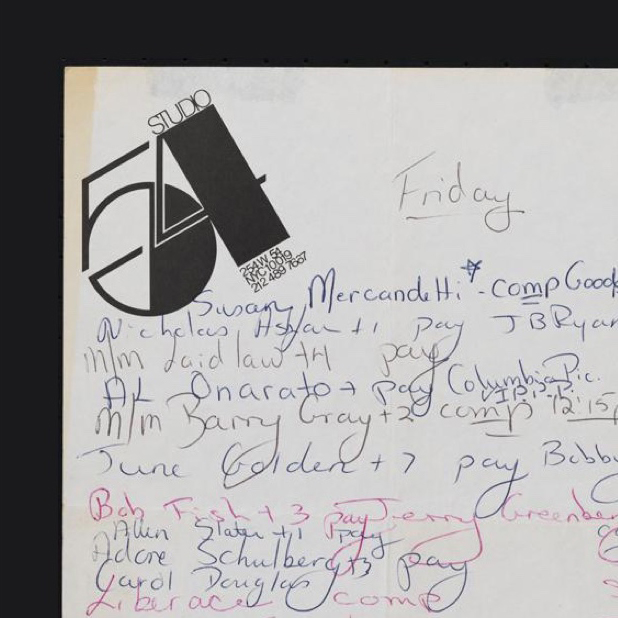 STUDIO
54
254 W. 54
NYC 10019
212 489 7667
Friday
Susan Mercandetti* - comp Good
Nicholas +1 pay JB Ryan
M/M Laidlaw +4 pay
AL Onarato + pay Columbia Pic.
V.I.P.
M/m Barry Gray +2 comp 12:15
June Golden + 7 pay Bobby
Bob Fish + 3 pay Jerry Greenber
Allen Slater +1 pay
Adore Schulberg +3 pay
Carol Douglas
Liberace comp